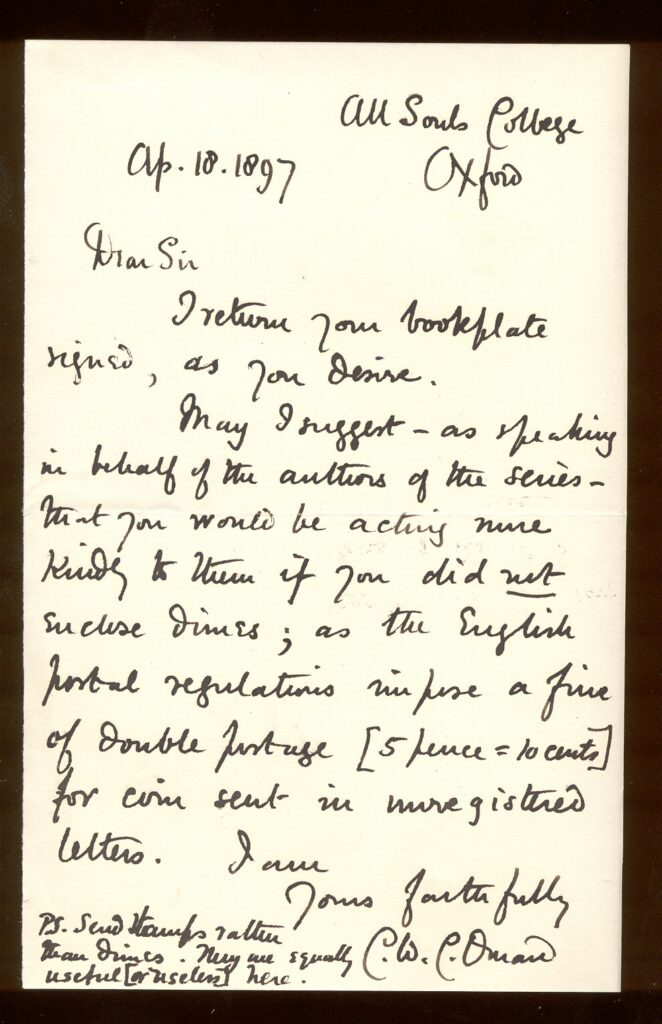 All Souls College
Oxford
Ap. 18. 1897
Dear Sir
I return your bookplate
signed, as you desire.
May I suggest – as speaking
in behalf of the authors of the series –
that you would be acting more
kindly to them if you did not
enclose dimes; as the English
postal regulations impose a fine
of double postage [5 pence = 10 cents]
for coin sent in unregistered
letters. I am
Yours faithfully
C. W. C. Oman
PS. Send stamps rather
than dimes. They are equally
useful [or useless] here.